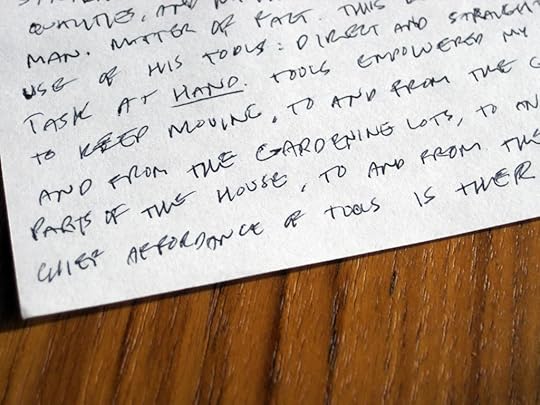 QUALITIES, AND
MAN. MATTER OF FACT. THIS
USE OF HIS TOOLS: DIRECT AND STRAIGHT
TASK AT HAND. TOOLS EMPOWERED MY
TO KEEP MOVING, TO AND FROM THE G
AND FROM THE GARDENING LOTS, TO AN
PARTS OF THE HOUSE, TO AND FROM THE
CHIEF AFFORDANCE OF TOOLS IS THEIR